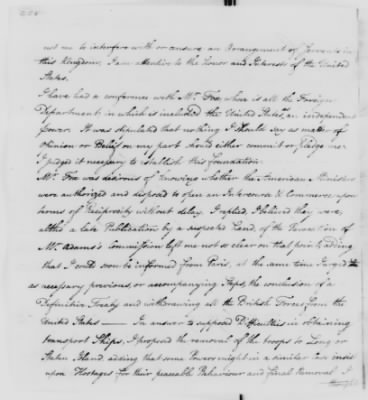 not me to interfere with or censure an arrangement of Servants in
this Kingdom, I am attentive to the honor and Interests of the United
States.
I have had a conference with Mr. Fox, where is all the Foreign
Department in which is included the United States, an independent
Power. It was stipulated that nothing I should say as matter of
opinion or Belief on my part should either commit or pledge me.
I judged it necessary to establish this foundation.
Mr. Fox was desirous of knowing whether the American Ministers
were authorized and disposed to open an Intercourse & Commerce upon
terms of Reciprocity without delay. I replied, I believed they were,
altho' a late Publication by a respected hand, of the Revocation of
Mr. Adams's Commission left me not so clear on that point, adding
that I could soon be informed from Paris, at the same time I urged
as necessary previous, or accompanying Steps, the conclusion of a
Definitive Treaty and withdrawing all the British Forces from the
United States — In answer to supposed Difficulties in obtaining
transport Ships, I proposed the removal of the troops to Long or
Staten Island, adding that some Powers might in a similar Case insist
upon Hostages for their peaceable Behaviour and final Removal. I